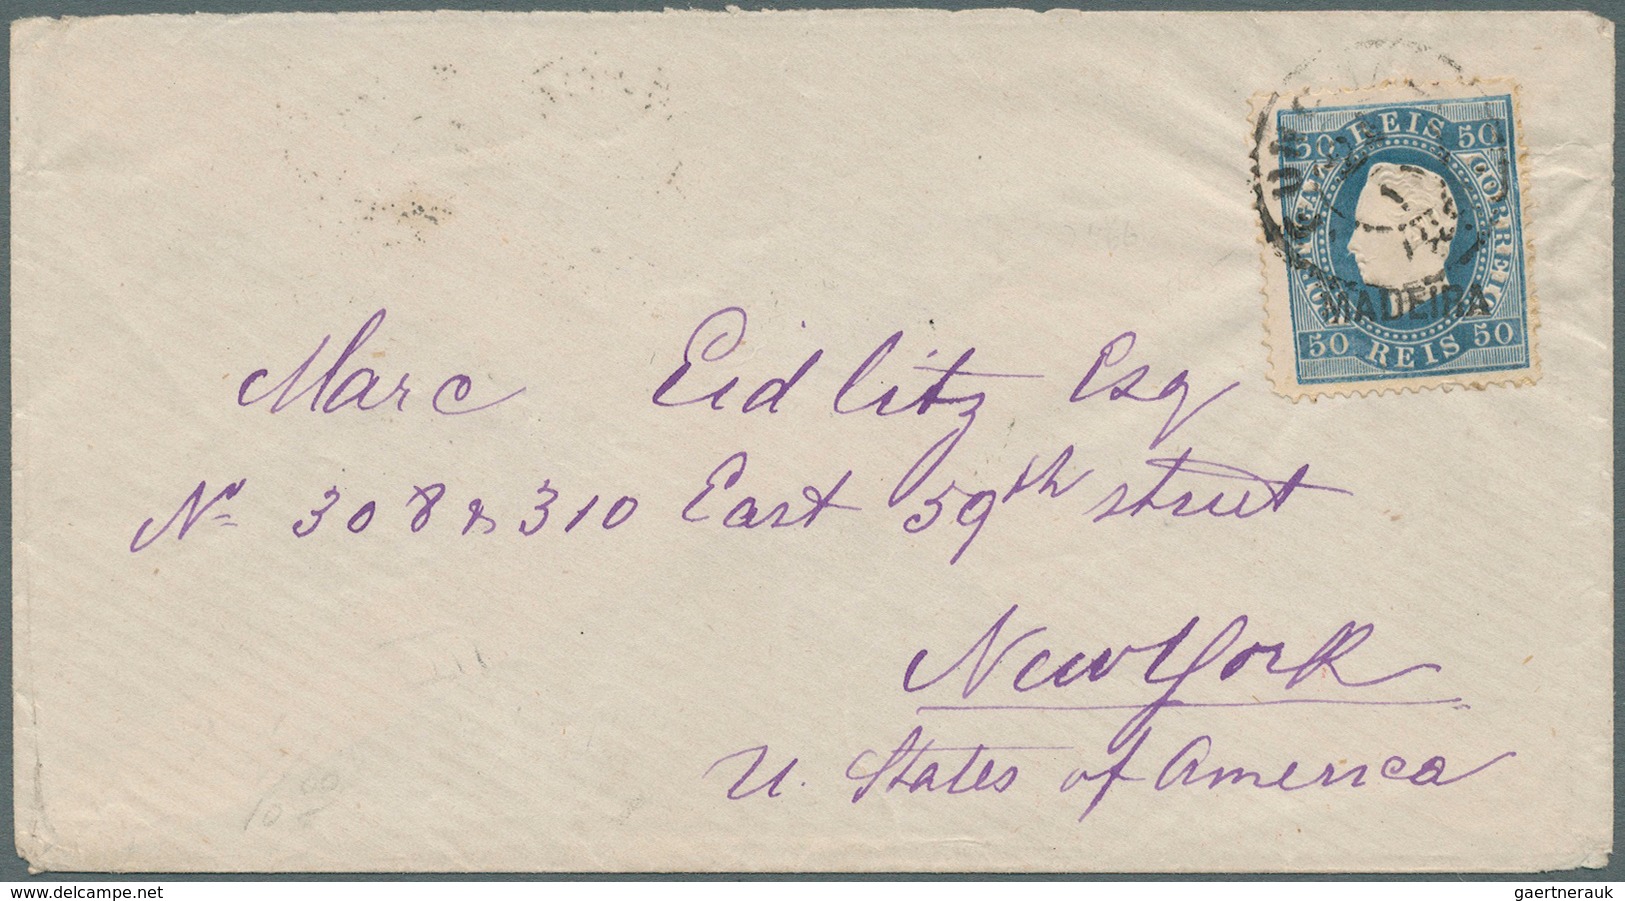 50 REIS 50
CORREIO
MADEIRA
50 REIS 50
Marc Eidlitz Esq
No 308 & 310 East 59th street
New York
U. States of America
delcampe.net
gaertnerauk